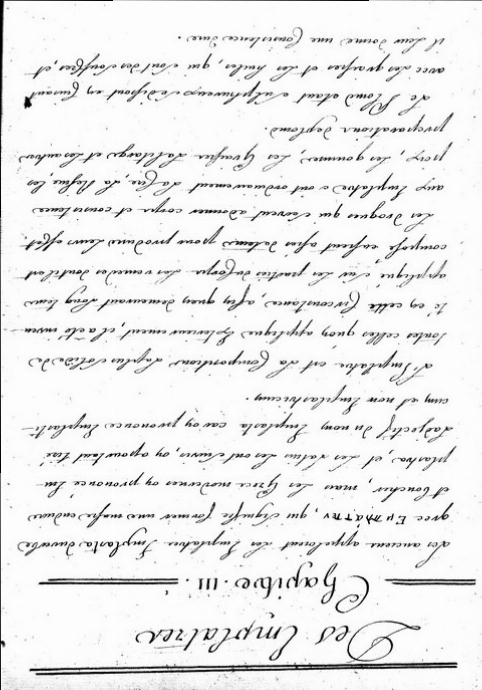 Des Emplatres
Chapitre III.
Les anciens appeloient Les Emplatres Emplasta du verbe
grec Εμπλάττιν, qui signifie former une masse enduire
et boucher, mais Les Grecs modernes on prononcé Em-
plastra, et Les Latins Les ont suivis, on a pourtant tiré
L'adjectif du nom Emplasta car on prononce Emplasti-
cum et non Emplastricum.
L'Emplatre est La Composition La plus solide de
toutes celles quon applique Exterieurement, et a eté inven-
té en cette Circonstance, afin quen demeurant Long tems
appliqué sur Les parties du corps Les remedes dont il est
composé eussent assés de tems pour produire Leurs effet
Les drogues qui servent a donner corps et consistence
aux Emplatres sont ordinairement La cire, La Résine, Les
poix, Les gommes, Les Graisses La Litarge et Les autres
preparations de plomb.
Le Plomb etant sulphureux se dissout en cuisant
avec Les graisses et Les huiles, qui sont des souffres, et
il Leur donne une Consistence dure.